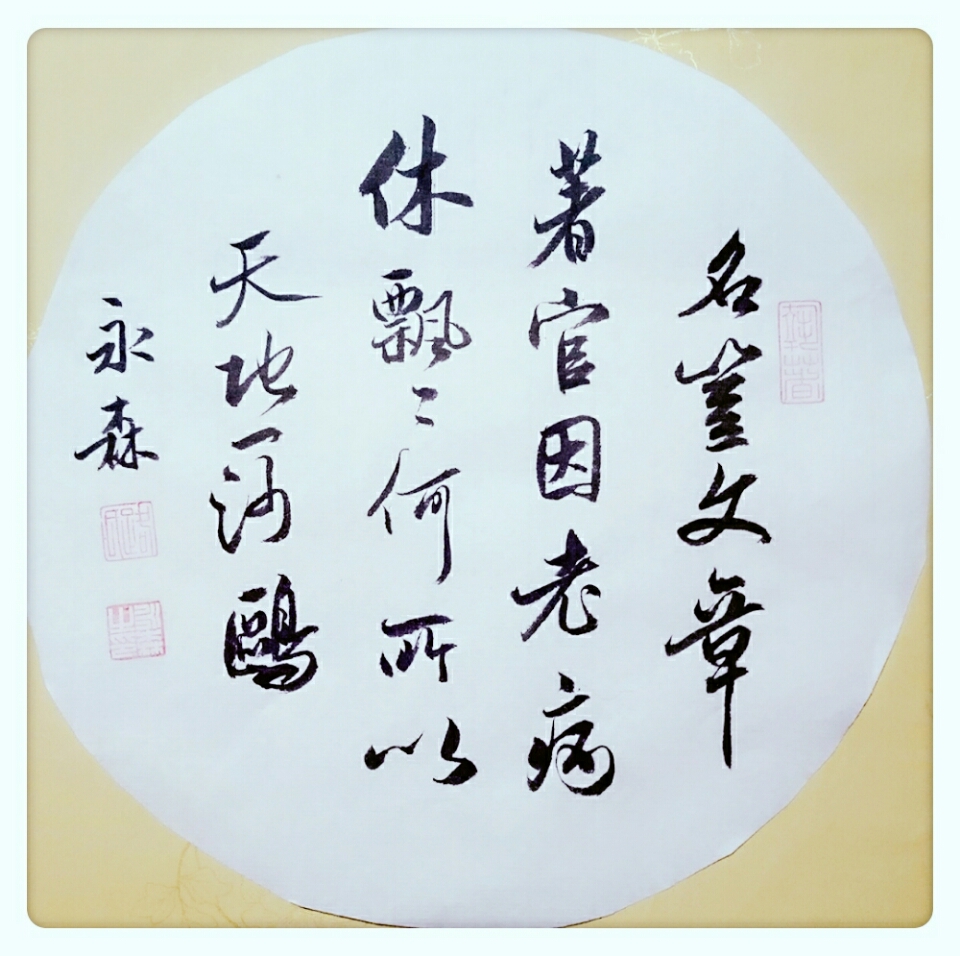 名豈文章
著官因老病
休飄〻何所以
天地一沙鷗
永森